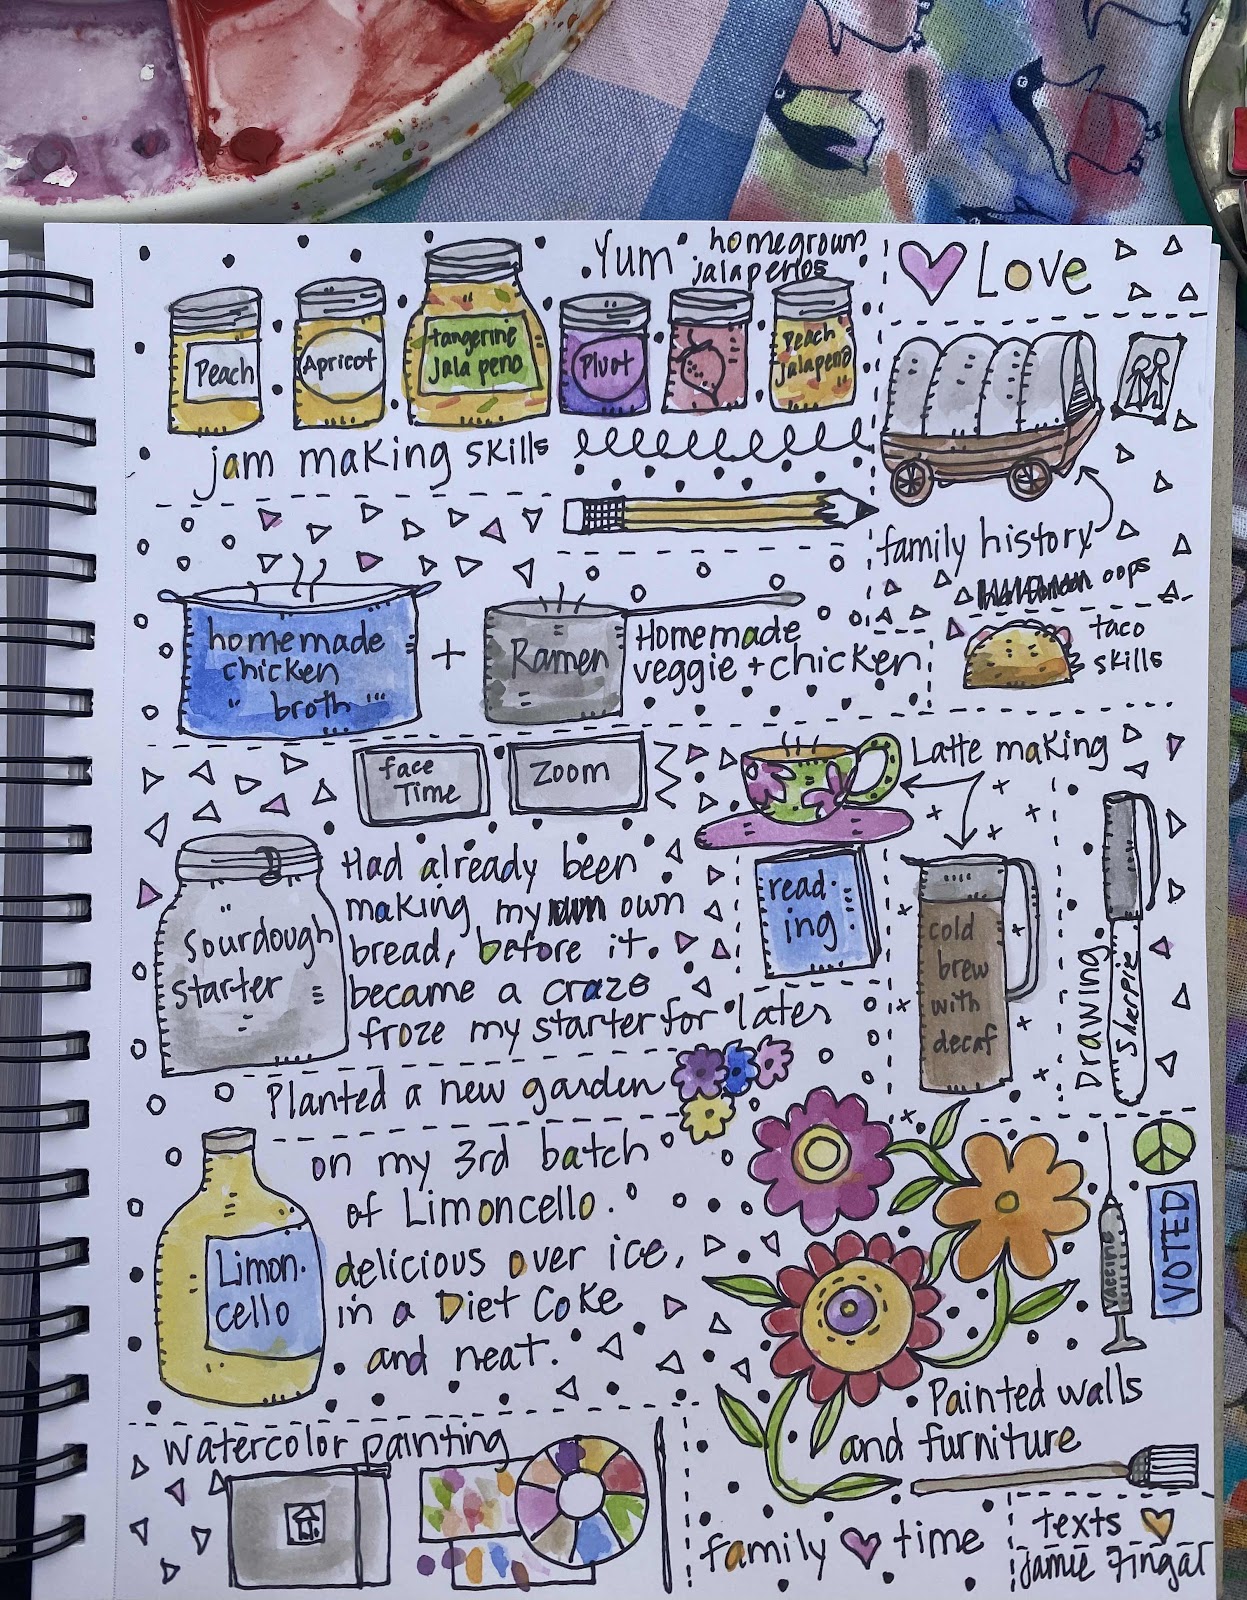 Yum homegrown
jalapeños
Love
Peach
Apricot
tangerine
jalapeno
Pluot
Peach
jalapeno
jam making skills
family history
oops
homemade
chicken
broth
+
Ramen
Homemade
veggie + chicken
taco
skills
face
Time
Zoom
Latte making
Sourdough
starter
Had already been
making my own
bread, before it
became a craze
froze my starter for later
read.
ing
cold
brew
with
decaf
Drawing
Sharpie
Planted a new garden
on my 3rd batch
of Limoncello.
delicious over ice,
in a Diet Coke
and neat.
Limon.
cello
Vaccine
VOTED
Painted walls
and furniture
Watercolor painting
family time
texts
Jamie Fingal